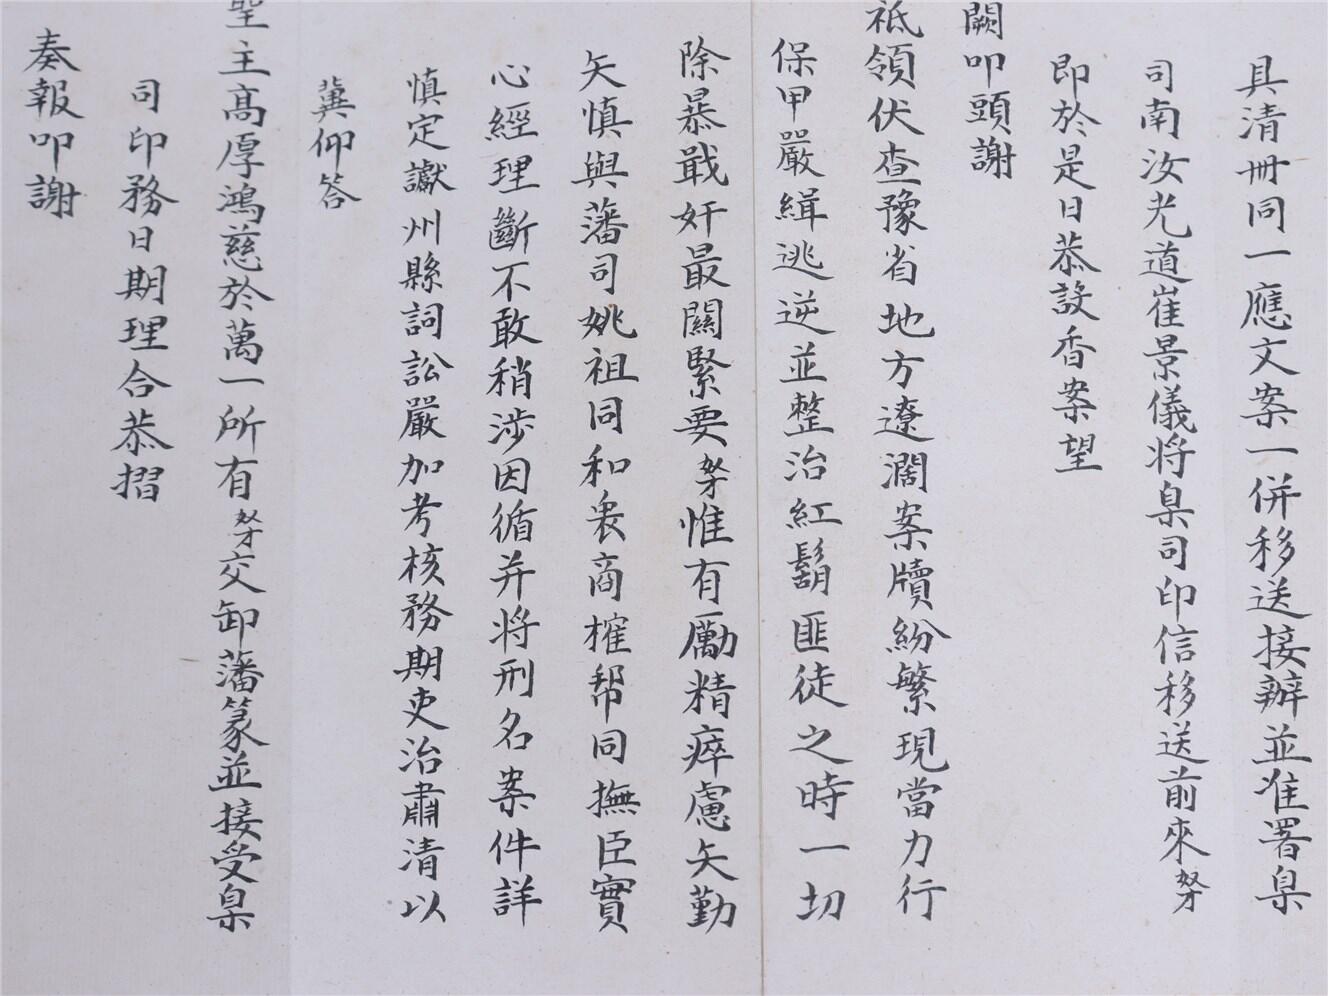 具清冊同一應文案一併移送接辦並准署臬
司南汝光道崔景儀將臬司印信移送前來奴才
即於是日恭設香案望
闕叩頭謝
祗領伏查豫省地方遼濶案牘紛繁現當力行
保甲嚴緝逃逆並整治紅鬍匪徒之時一切
除暴戢奸最關緊要奴才惟有勵精瘁慮矢勤
矢慎與藩司姚祖同和衷商榷幇同撫臣實
心經理斷不敢稍涉因循并將刑名案件詳
慎定讞州縣詞訟嚴加考核務期吏治肅清以
冀仰答
聖主高厚鴻慈於萬一所有奴才交卸藩篆並接受臬
司印務日期理合恭摺
奏報叩謝